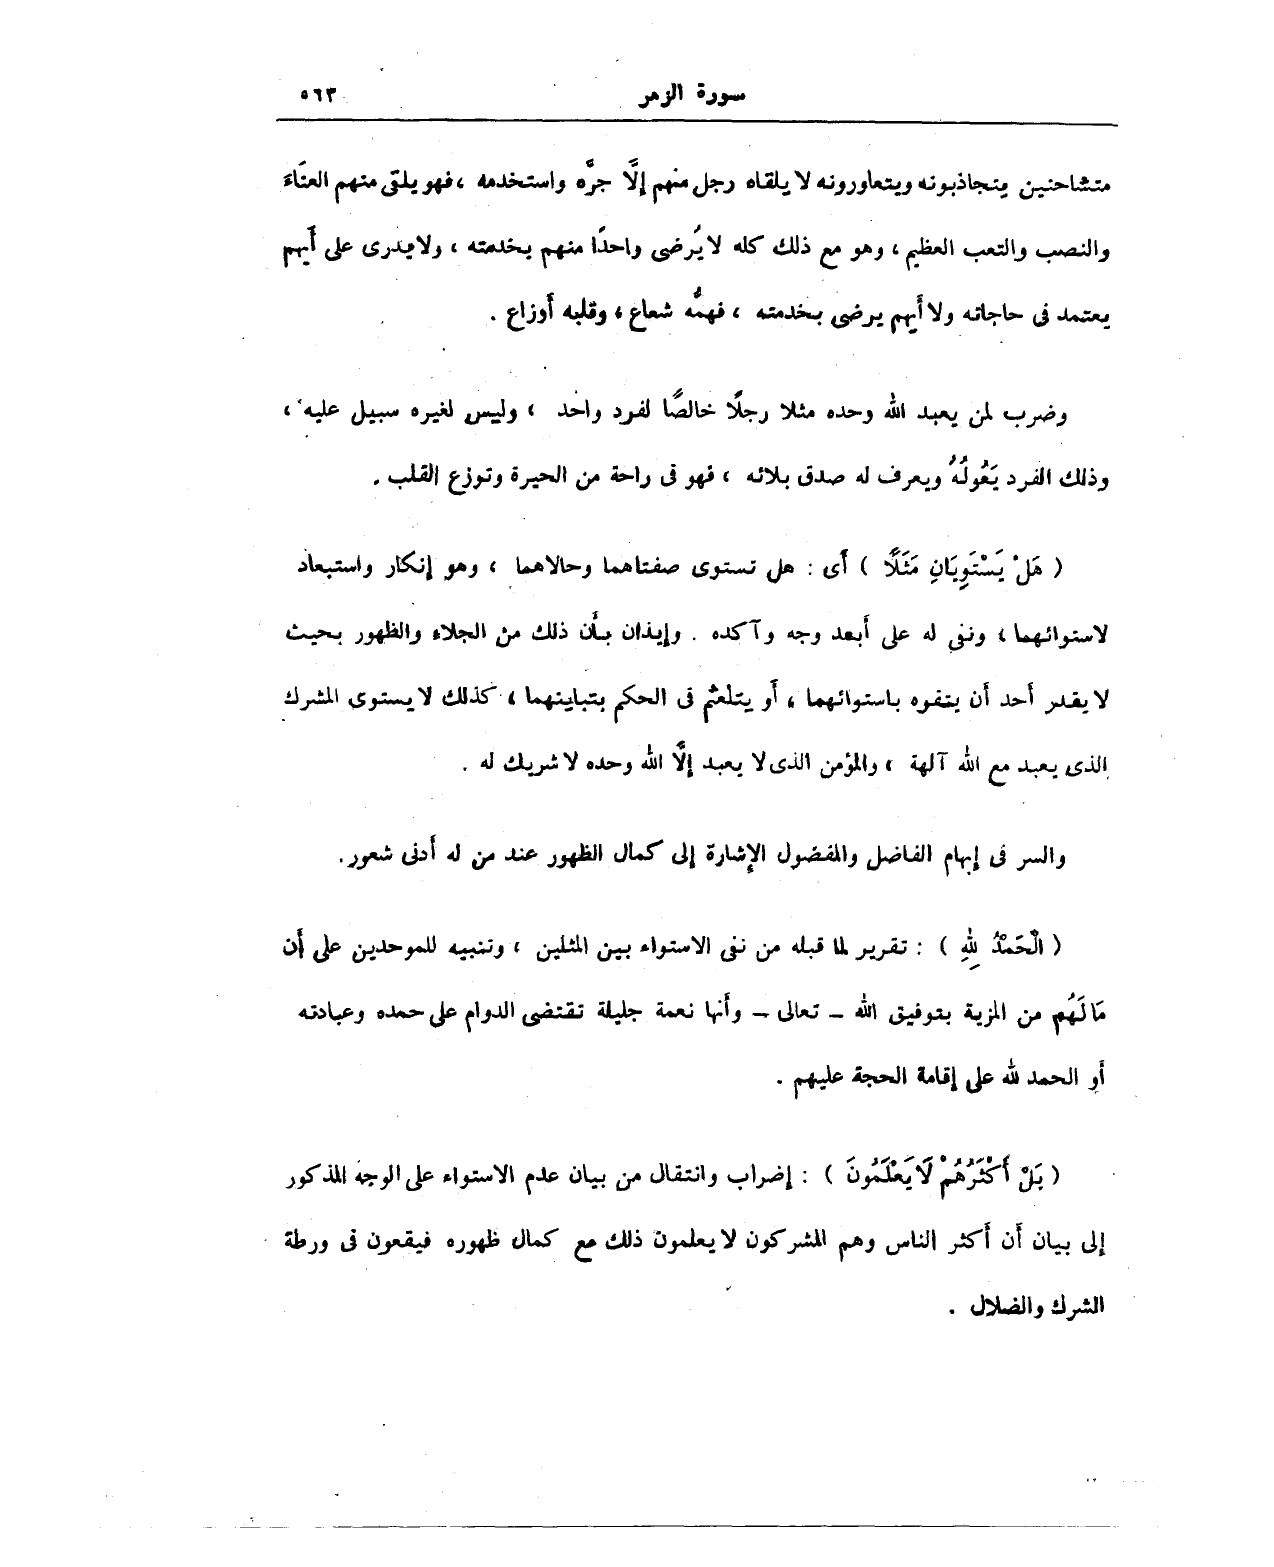 سورة الزمر ٥٦٣
متشاحنين يتجاذبونه ويتعاورونه لا يلقاه رجل منهم إلَّا جرَّه واستخدمه ، فهو يلقى منهم العنَاءَ
والنصب والتعب العظيم ، وهو مع ذلك كله لا يُرضى واحدًا منهم بخدمته ، ولا يدرى على أَيهم
يعتمد فى حاجاته ولا أَيهم يرضى بخدمته ، فهمُّه شعاع ، وقلبه أَوزاع .
وضرب لمن يعبد الله وحده مثلا رجلًا خالصًا لفرد واحد ، وليس لغيره سبيل عليه ،
وذلك الفرد يَعُولُهُ ويعرف له صدق بلائه ، فهو فى راحة من الحيرة وتوزع القلب .
( هَلْ يَسْتَوِيَانِ مَثَلًا ) أَى : هل تستوى صفتاهما وحالاهما ، وهو إنكار واستبعاد
لاستوائهما ، ونفى له على أَبعد وجه وآكده . وإيذان بأَن ذلك من الجلاء والظهور بحيث
لا يقدر أحد أن يتفوه باستوائهما ، أَو يتلعثم فى الحكم بتباينهما ، كذلك لا يستوى المشرك
الذى يعبد مع الله آلهة ، والمؤمن الذى لا يعبد إلَّا الله وحده لا شريك له .
والسر فى إبهام الفاضل والمفضول الإشارة إلى كمال الظهور عند من له أَدنى شعور .
( الْحَمْدُ لِلهِ ) : تقرير لما قبله من نفى الاستواء بين المثلين ، وتنبيه للموحدين على أَن
مَا لَهُم من المزية بتوفيق الله - تعالى - وأَنها نعمة جليلة تقتضى الدوام على حمده وعبادته
أَو الحمد لله على إقامة الحجة عليهم .
( بَلْ أَكْثَرُهُمْ لَا يَعْلَمُونَ ) : إضراب وانتقال من بيان عدم الاستواء على الوجه المذكور
إلى بيان أن أَكثر الناس وهم المشركون لا يعلمون ذلك مع كمال ظهوره فيقعون فى ورطة
الشرك والضلال .